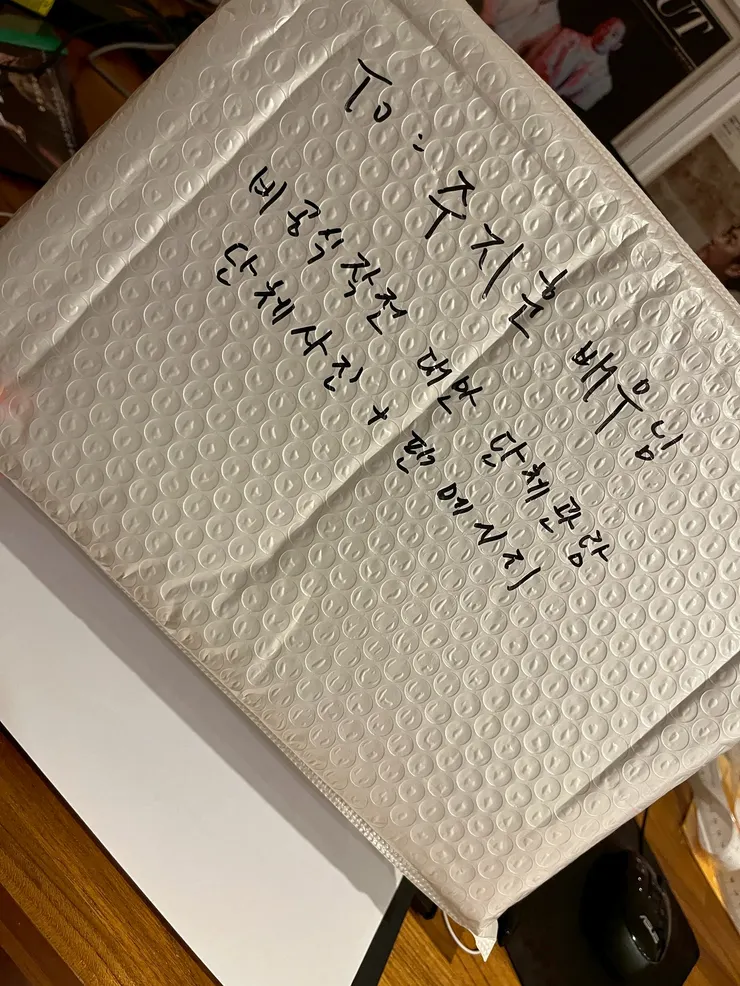 To: 주지훈 배우님
비공식작전 대만 단체관람
단체사진 + 팬 메시지
OUT